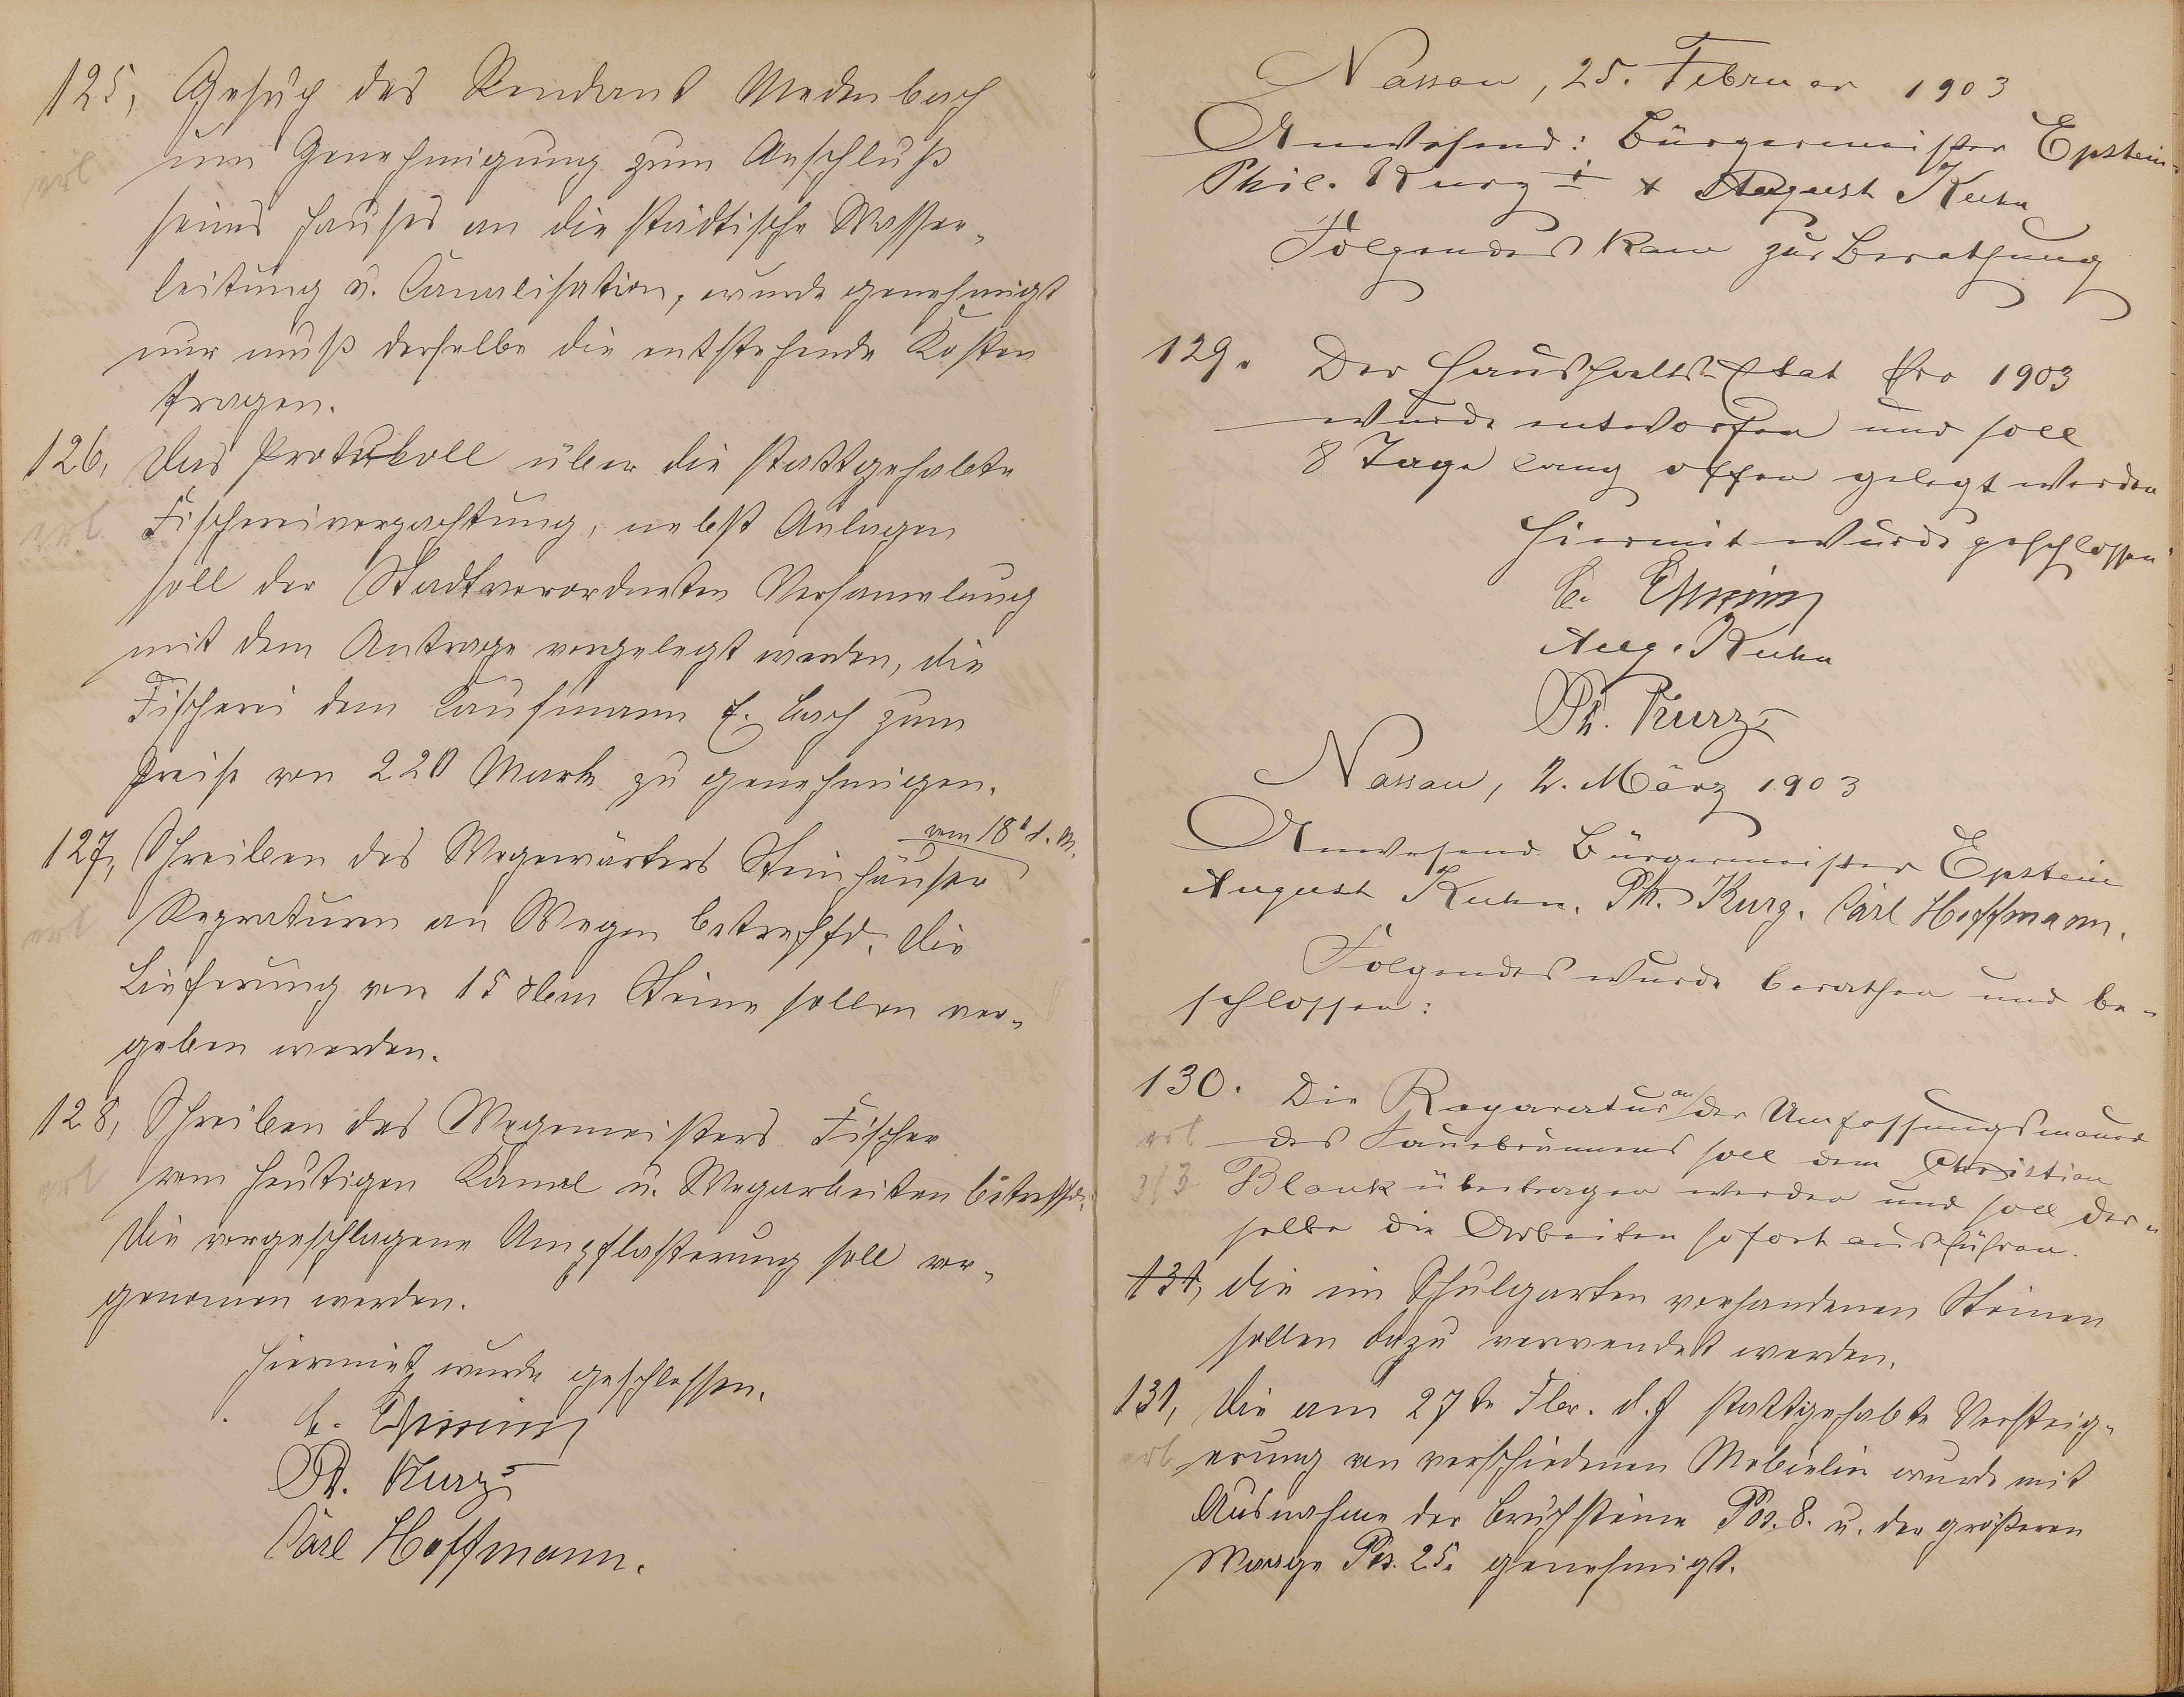 125, Gesuch des Rendant Medenbach
um Genehmigung zum Anschluß
erl
seines Hauses an die städtische Wasser-
leitung u. Canalisation, wurde genehmigt
nur muß derselbe die entstehende Kosten
tragen.
126, Das Protokoll über die stattgehabte
erl
Fischereiverpachtung, nebst Anlagen
soll der Stadtverordneten Versammlung
mit dem Antrage vorgelegt werden, die
Fischerei dem Kaufmann E. Bach zum
Preise von 220 Mark zu genehmigen.
vom 18t d. M.
127, Schreiben des Wegewärters Steinhäuser
erl
Repraturen an Wegen betreffd. Die
Lieferung von 15 cbm Steine sollen ver-
geben werden.
128, Schreiben des Wegemeisters Fischer
erl
vom heutigen Kanal u. Wegarbeiten betreffd.
Die vorgeschlagene Umpflasterung soll vor-
genommen werden.
Hiermit wurde geschlossen.
Ph. Kurz
Carl Hoffmann.
Nassau, 25. Februar 1903
Anwesend: Bürgermeister Epstein
Phil. Kurz I + August Kuhn
Folgendes kam zur Berathung
129. Der Haushalts-Etat pro 1903
wurde entworfen und soll
8 Tage lang offen gelegt werden
Hiermit wurde geschlossen
Aug. Kuhn
Ph. Kurz
Nassau, 2. März 1903
Anwesend Bürgermeister Epstein
August Kuhn. Ph. Kurz. Carl Hoffmann.
Folgendes wurde berathen und be-
schlossen:
130. Die Reparatur an der Umfassungsmauer
erl
des Sauerbrunnens soll dem Christian
3/3
Blank übertragen werden und soll der-
selbe die Arbeiten sofort ausführen.
131, die im Schulgarten vorhandenen Steinen
sollen dazu verwendet werden.
131, Die am 27te Fbr. d. J stattgehabte Versteig-
erl
erung von verschiedenen Mobielin wurde mit
Ausnahme der Bruchsteine Pos. 8. u. der größeren
Waage Pos. 25. genehmigt.